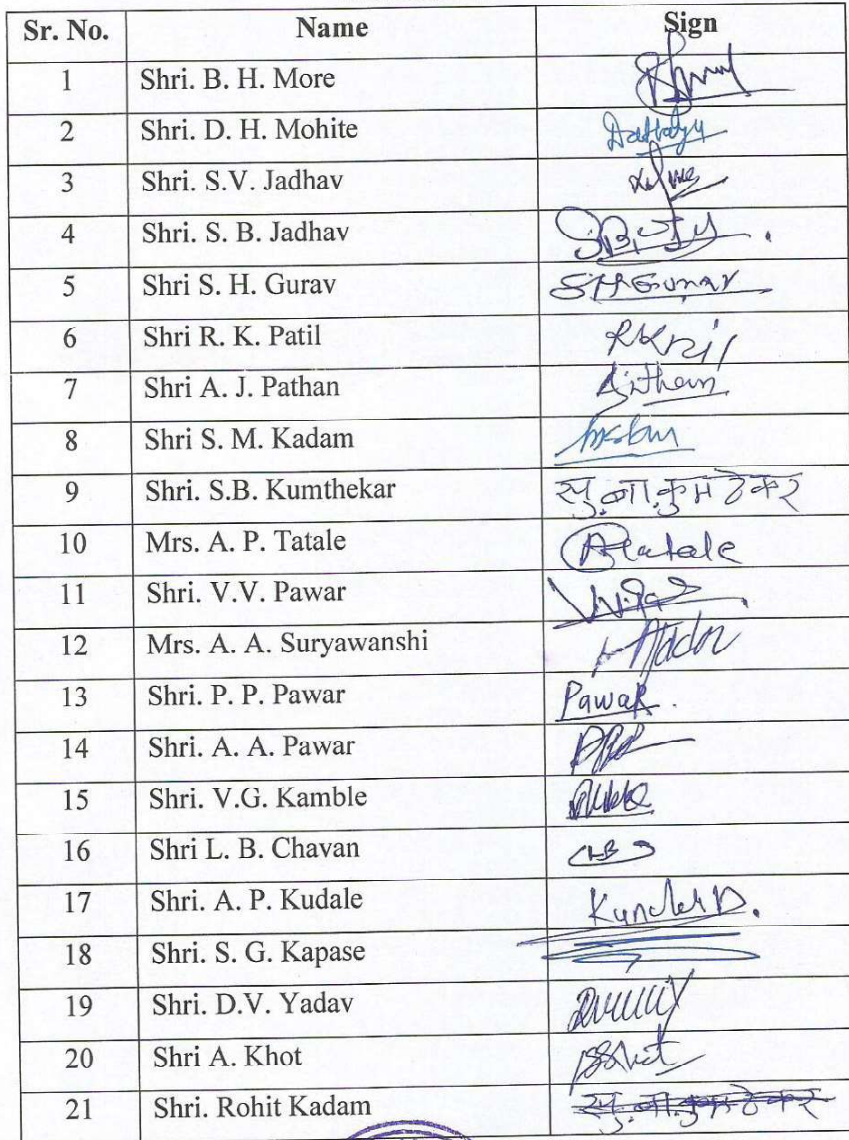 Sr. No. Name Sign
1 Shri. B. H. More
2 Shri. D. H. Mohite
3 Shri. S.V. Jadhav
4 Shri. S. B. Jadhav
5 Shri S. H. Gurav SHGurav
6 Shri R. K. Patil
7 Shri A. J. Pathan
8 Shri S. M. Kadam
9 Shri. S.B. Kumthekar सु.बा.कुमठेकर
10 Mrs. A. P. Tatale APtatale
11 Shri. V.V. Pawar
12 Mrs. A. A. Suryawanshi
13 Shri. P. P. Pawar Pawar.
14 Shri. A. A. Pawar
15 Shri. V.G. Kamble
16 Shri L. B. Chavan
17 Shri. A. P. Kudale
18 Shri. S. G. Kapase
19 Shri. D.V. Yadav
20 Shri A. Khot
21 Shri. Rohit Kadam सु.बा.कुमठेकर